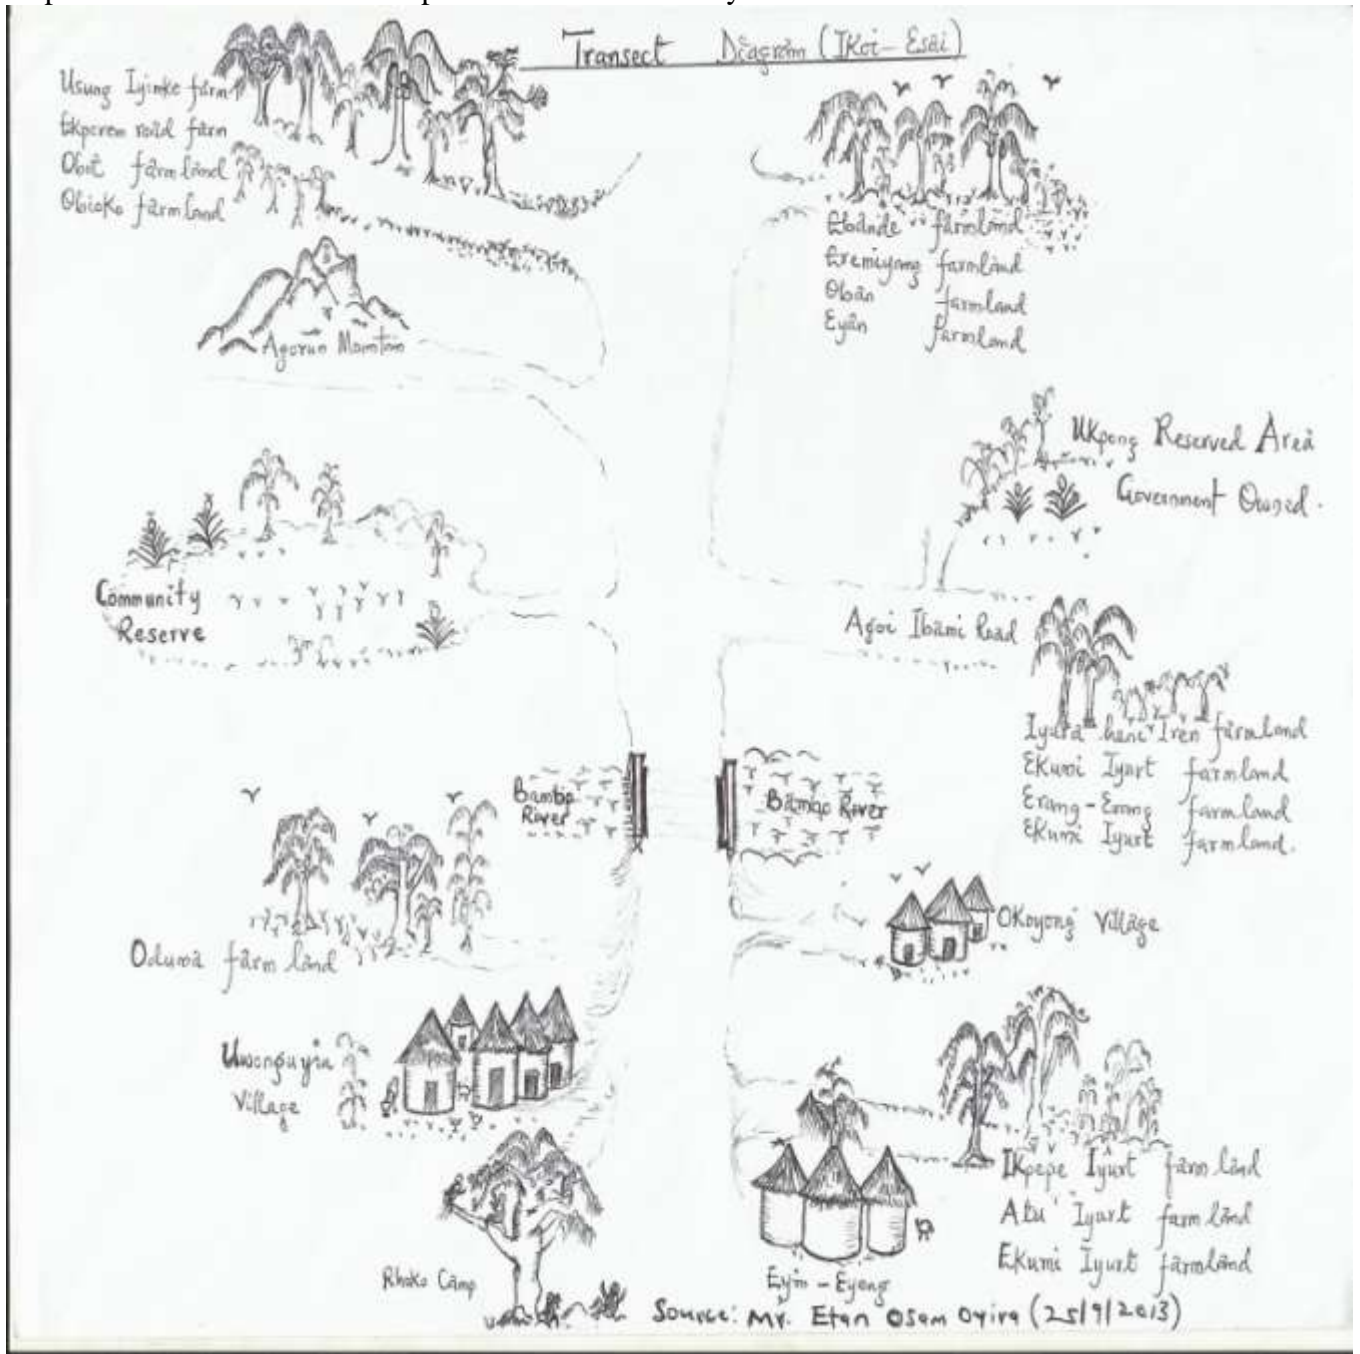 Transect Diagram (Ikoi-Esai)
Usung Iyimke farm
Ekperem road farm
Obot farmland
Obioko farmland
Agorun Mountain
Ebande farmland
Eremiyang farmland
Oban farmland
Eyan farmland
Ukpong Reserved Area
Government Owned.
Community
Reserve
Agoi Ibami Road
Iyura hani Iren farmland
Ekumi Iyurt farmland
Erang-Erang farmland
Ekumi Iyurt farmland.
Bambo
River
Bambo River
Oduma farm land
Okoyong Village
Village
Ikpepe Iyurt farm land
Atu Iyurt farm land
Ekumi Iyurt farmland
Rhoko Camp
Eyin - Eyong
Source: Mr. Etan Osam Oyira (25/9/2013)